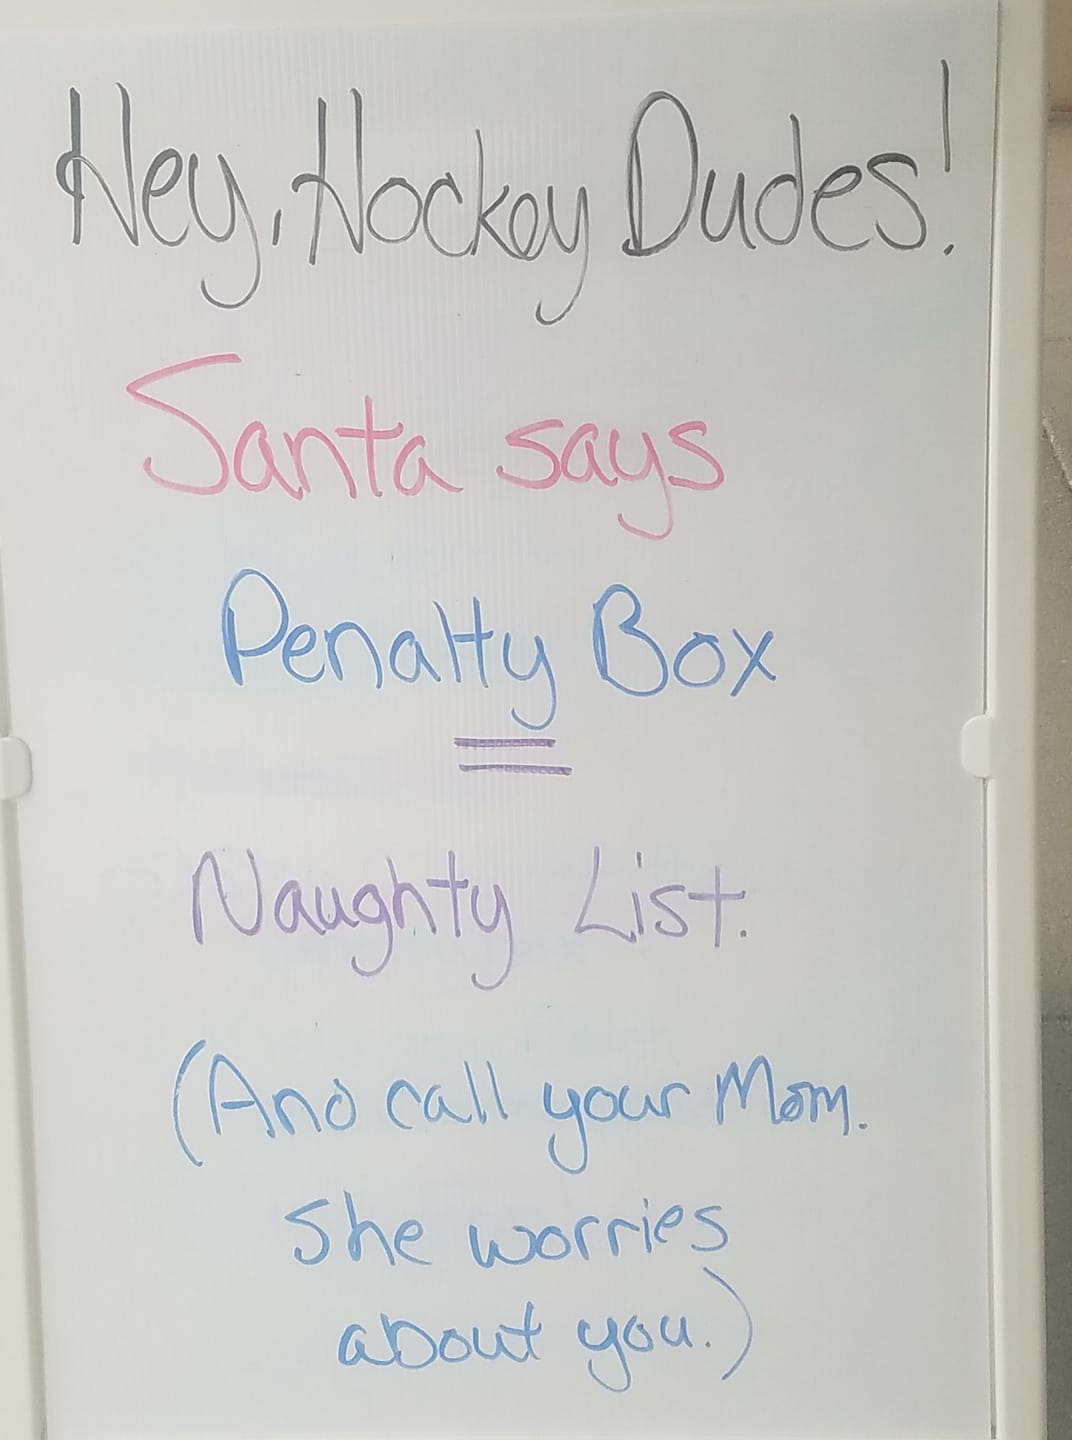 Hey, Hockey Dudes!
Santa says
Penalty Box
=
Naughty List.
(And call your Mom.
She worries
about you.)